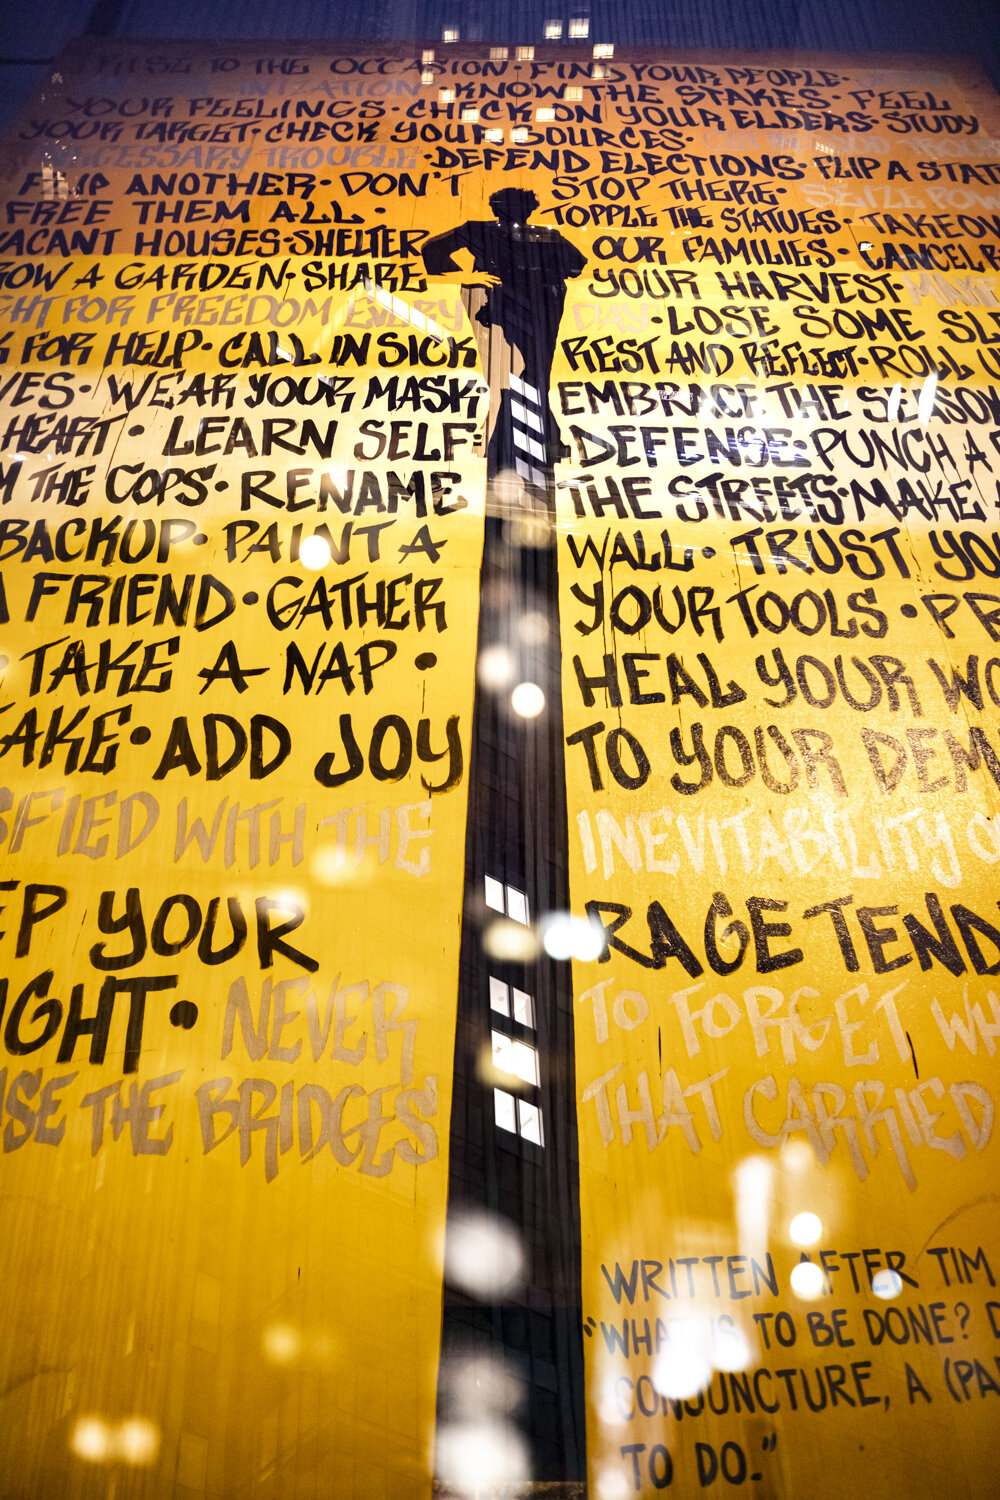 RISE TO THE OCCASION · FIND YOUR PEOPLE ·
· KNOW THE STAKES · FEEL
YOUR FEELINGS · CHECK ON YOUR ELDERS · STUDY
YOUR TARGET · CHECK YOUR SOURCES ·
NECESSARY TROUBLE · DEFEND ELECTIONS · FLIP A STAT
FLIP ANOTHER · DON'T STOP THERE · SEIZE POW
FREE THEM ALL · TOPPLE THE STATUES · TAKEOV
VACANT HOUSES · SHELTER OUR FAMILIES · CANCEL R
ROW A GARDEN · SHARE YOUR HARVEST · MAKE
GHT FOR FREEDOM EVERY DAY · LOSE SOME SLE
K FOR HELP · CALL IN SICK REST AND REFLECT · ROLL U
VES · WEAR YOUR MASK · EMBRACE THE SEASON
HEART · LEARN SELF- DEFENSE · PUNCH A
M THE COPS · RENAME THE STREETS · MAKE A
BACKUP · PAINT A WALL · TRUST YOU
A FRIEND · GATHER YOUR TOOLS · PR
· TAKE A NAP · HEAL YOUR WO
AKE · ADD JOY TO YOUR DEM
SFIED WITH THE INEVITABILITY O
EP YOUR RAGE TEND
IGHT · NEVER TO FORGET WH
SE THE BRIDGES THAT CARRIED
WRITTEN AFTER TIM
"WHAT IS TO BE DONE? D
CONJUNCTURE, A (PA
TO DO."